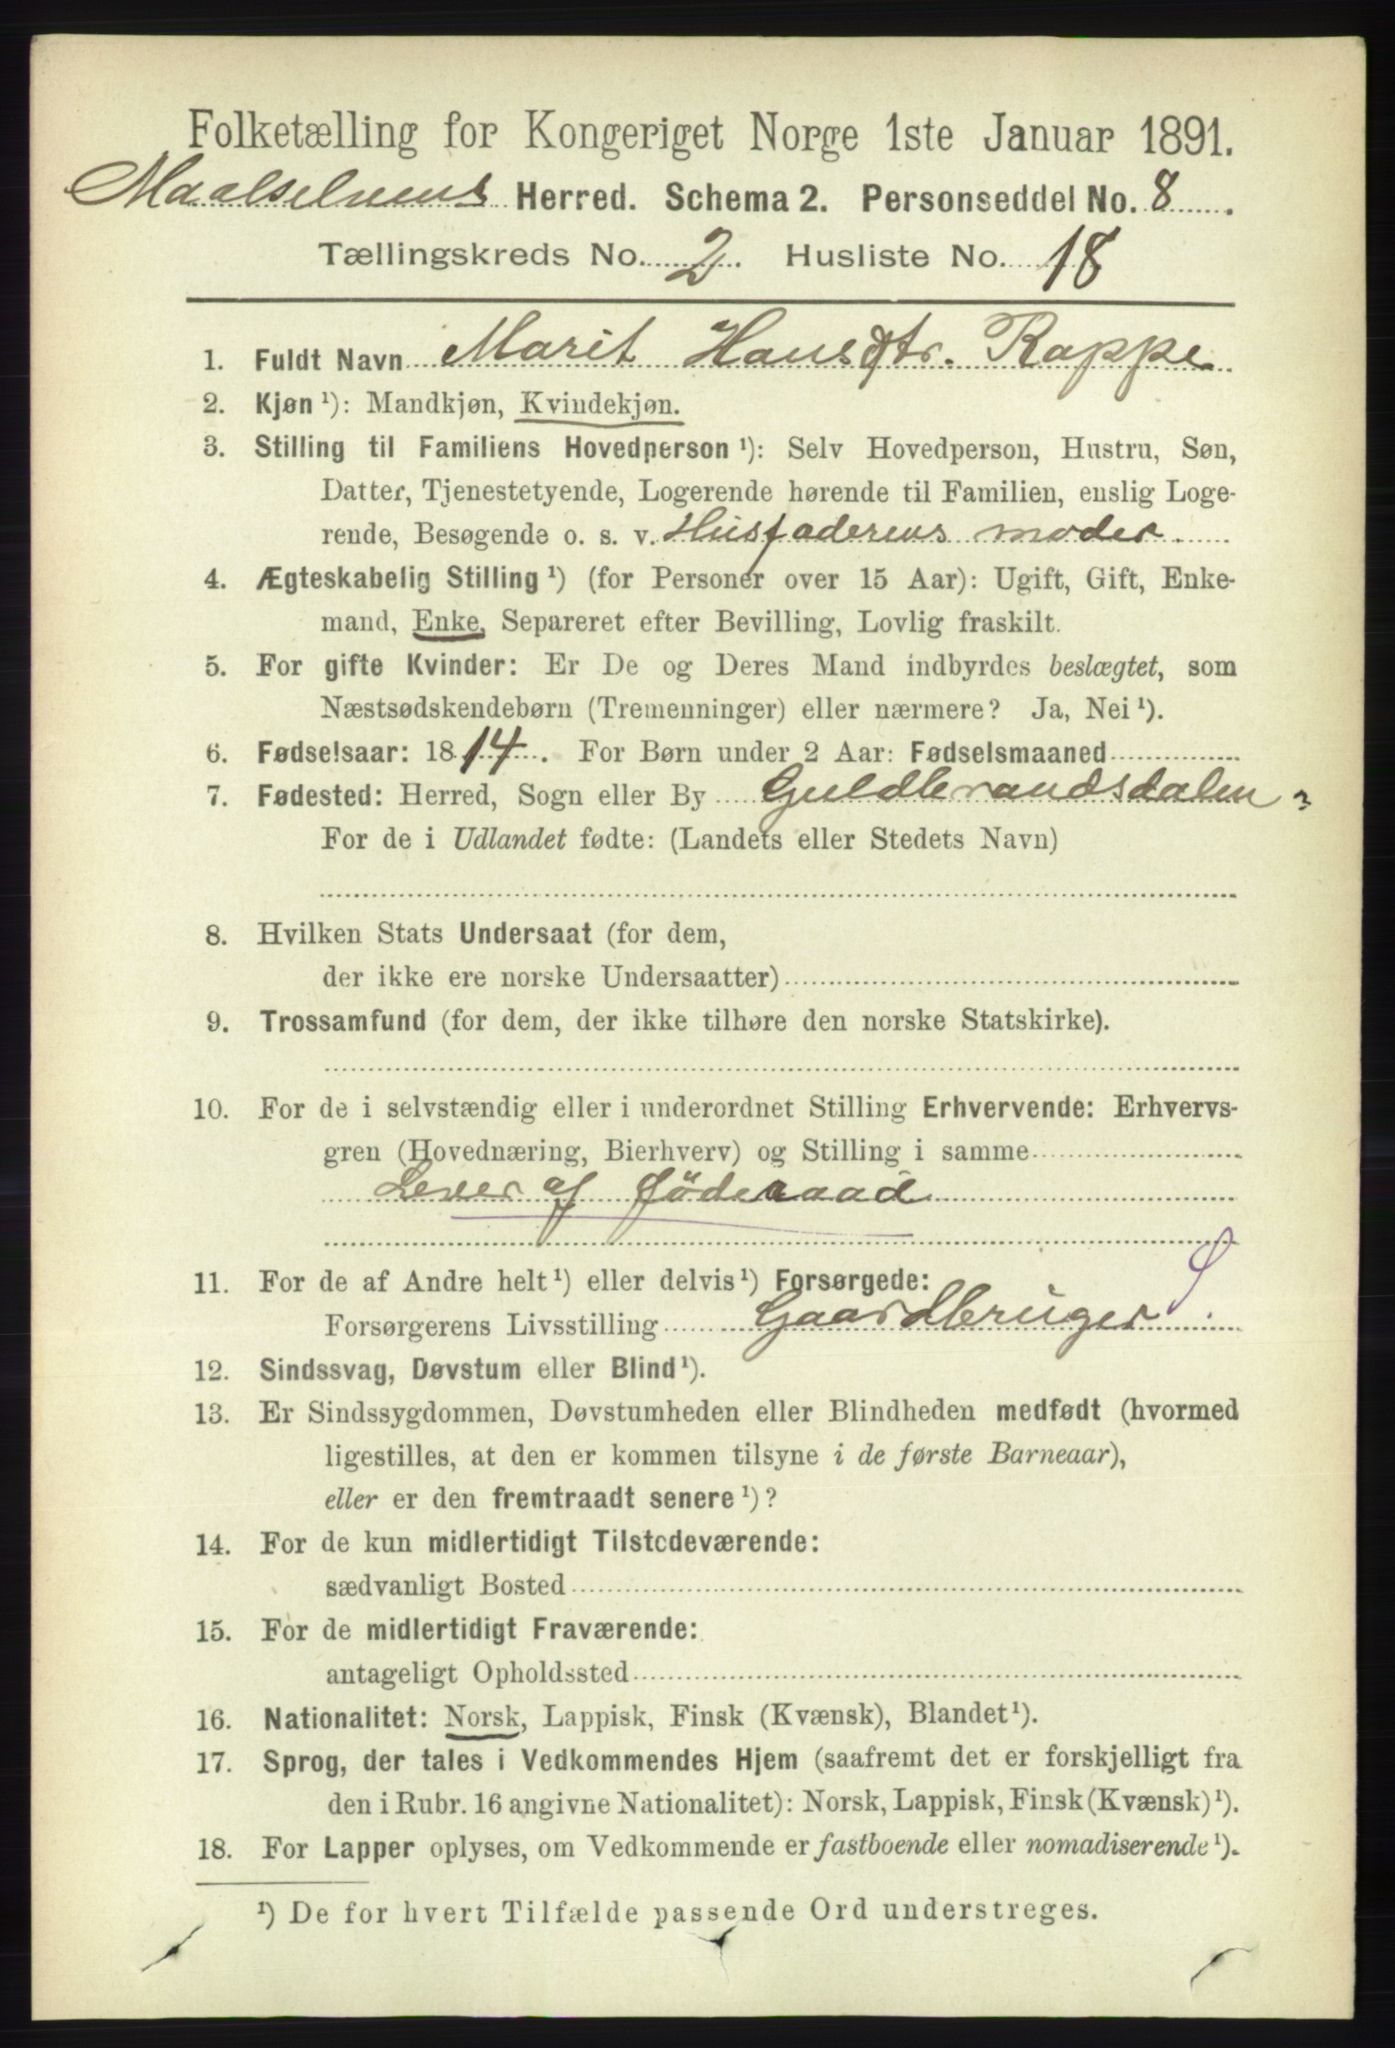 Folketælling for Kongeriget Norge 1ste Januar 1891.
Maalselvens Herred. Schema 2. Personseddel No. 8
Tællingskreds No. 2. Husliste No. 18
1. Fuldt Navn Marit Hansdtr. Rappe
2. Kjøn ¹): Mandkjøn, Kvindekjøn.
3. Stilling til Familiens Hovedperson ¹): Selv Hovedperson, Hustru, Søn,
Datter, Tjenestetyende, Logerende hørende til Familien, enslig Loge-
rende, Besøgende o. s. v. Husfaderens moder
4. Ægteskabelig Stilling ¹) (for Personer over 15 Aar): Ugift, Gift, Enke-
mand, Enke, Separeret efter Bevilling, Lovlig fraskilt.
5. For gifte Kvinder: Er De og Deres Mand indbyrdes beslægtet, som
Næstsødskendebørn (Tremenninger) eller nærmere? Ja, Nei ¹).
6. Fødselsaar: 1814. For Børn under 2 Aar: Fødselsmaaned
7. Fødested: Herred, Sogn eller By Guldbrandsdalen
For de i Udlandet fødte: (Landets eller Stedets Navn)
8. Hvilken Stats Undersaat (for dem,
der ikke ere norske Undersaatter)
9. Trossamfund (for dem, der ikke tilhøre den norske Statskirke).
10. For de i selvstændig eller i underordnet Stilling Erhvervende: Erhvervs-
gren (Hovednæring, Bierhverv) og Stilling i samme
Lever af føderaad
11. For de af Andre helt ¹) eller delvis ¹) Forsørgede:
Forsørgerens Livsstilling Gaardbruger
12. Sindssvag, Døvstum eller Blind ¹).
13. Er Sindssygdommen, Døvstumheden eller Blindheden medfødt (hvormed
ligestilles, at den er kommen tilsyne i de første Barneaar),
eller er den fremtraadt senere ¹)?
14. For de kun midlertidigt Tilstedeværende:
sædvanligt Bosted
15. For de midlertidigt Fraværende:
antageligt Opholdssted
16. Nationalitet: Norsk, Lappisk, Finsk (Kvænsk), Blandet ¹).
17. Sprog, der tales i Vedkommendes Hjem (saafremt det er forskjelligt fra
den i Rubr. 16 angivne Nationalitet): Norsk, Lappisk, Finsk (Kvænsk) ¹).
18. For Lapper oplyses, om Vedkommende er fastboende eller nomadiserende ¹).
¹) De for hvert Tilfælde passende Ord understreges.